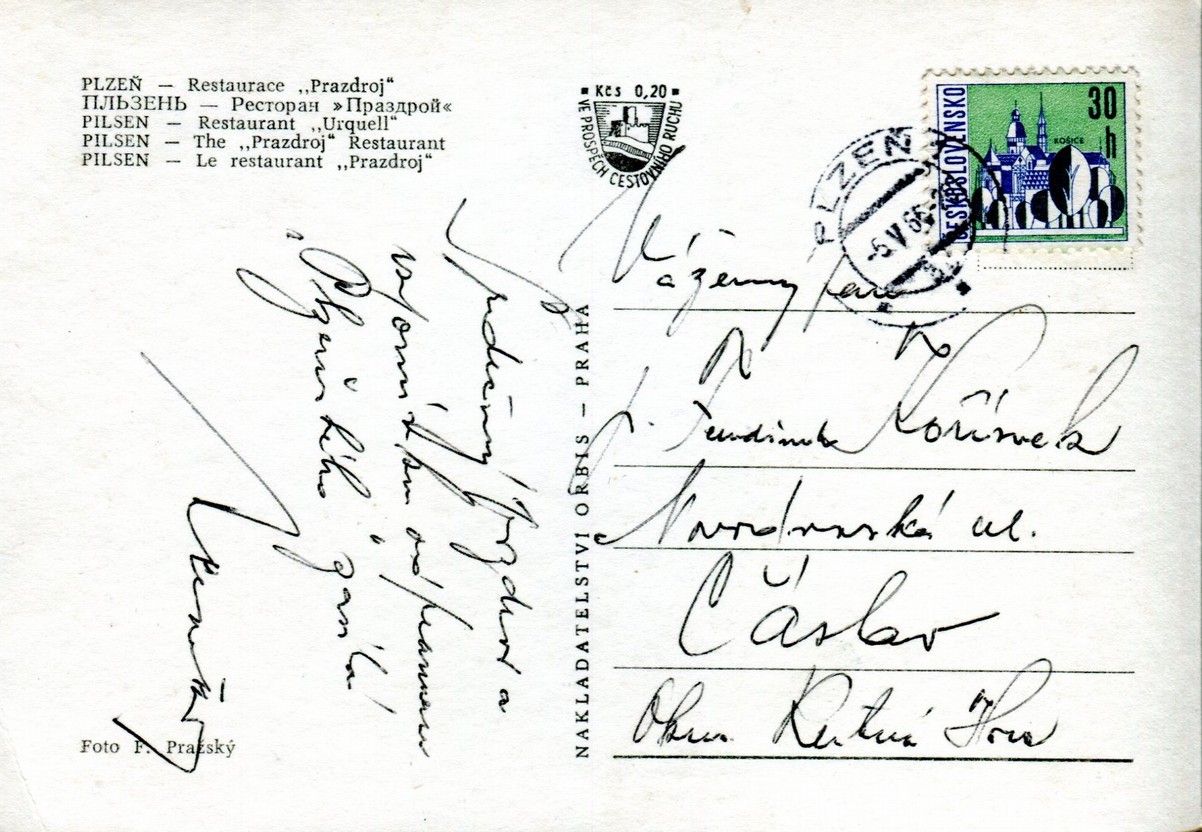 PLZEŇ — Restaurace ,,Prazdroj“
ПЛЬЗЕНЬ — Ресторан »Праздрой«
PILSEN — Restaurant ,,Urquell“
PILSEN — The ,,Prazdroj“ Restaurant
PILSEN — Le restaurant ,,Prazdroj“
Kčs 0,20
VE PROSPĚCH CESTOVNÍHO RUCHU
ČESKOSLOVENSKO
30 h
KOŠICE
PLZEŇ
-5.V.66
Srdečný pozdrav a
vzpomínku od pramenu
„Plzeňského“
NAKLADATELSTVÍ ORBIS — PRAHA
Vážený pan
Kořínek
ul.
Čáslav
Okres Kutná Hora
Foto F. Pražský